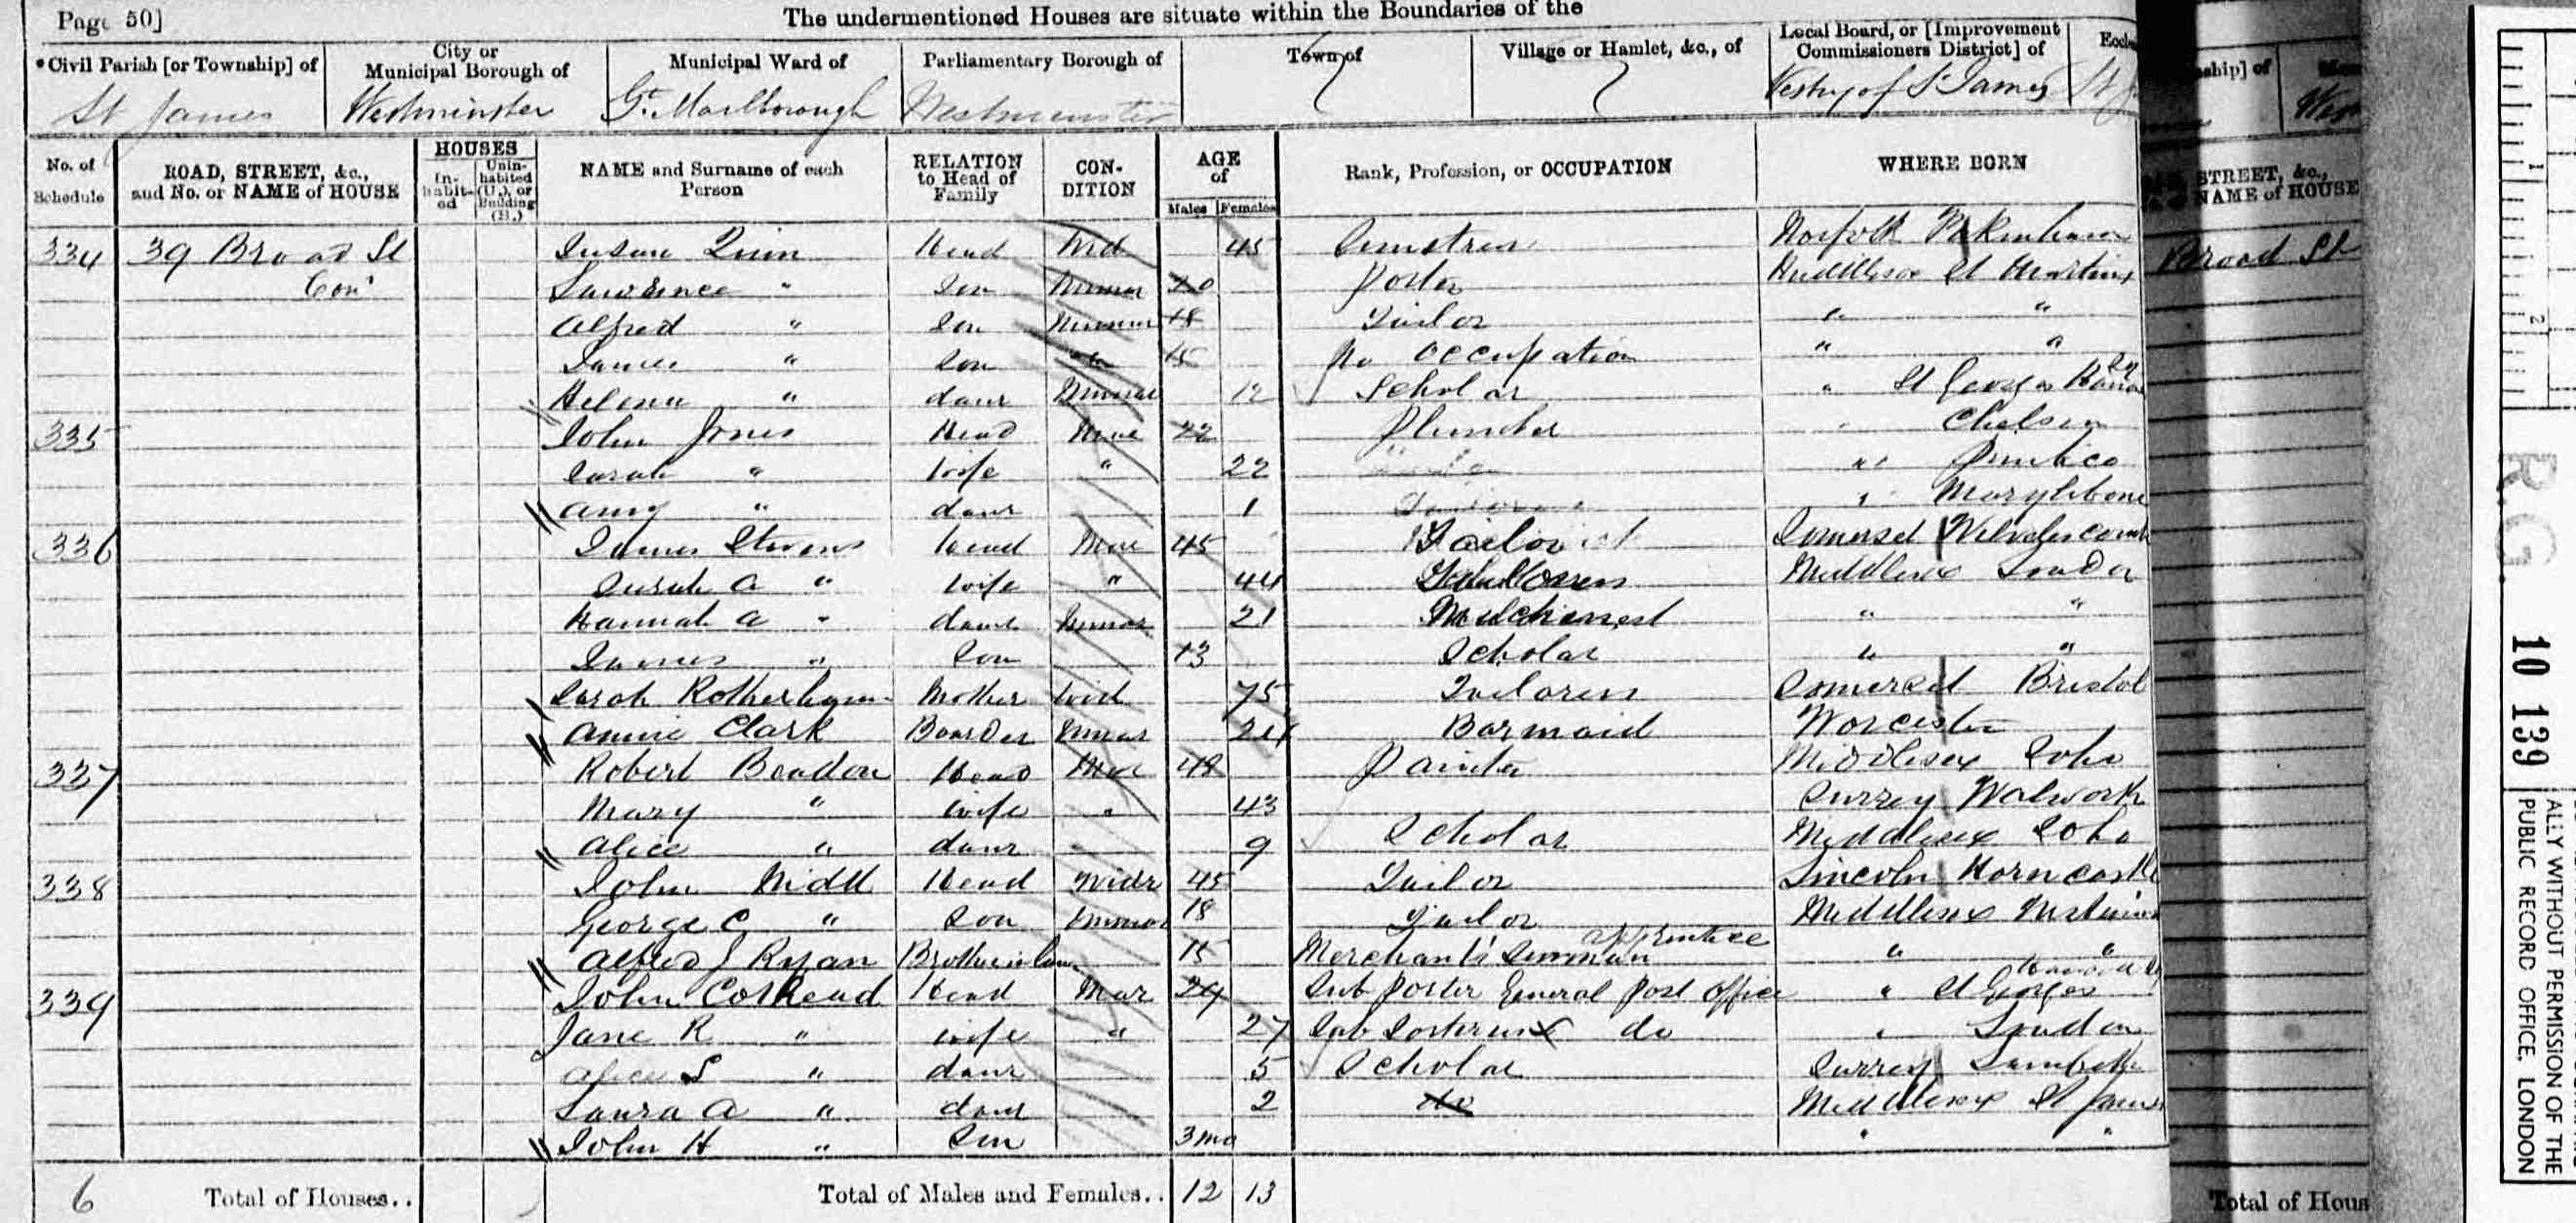 Page 50]
The undermentioned Houses are situate within the Boundaries of the
*Civil Parish [or Township] of
City or Municipal Borough of
Municipal Ward of
Parliamentary Borough of
Town of
Village or Hamlet, &c., of
Local Board, or [Improvement Commissioners District] of
St James
Westminster
Gt. Marlborough
Westminster
Vestry of St James
No. of Schedule
ROAD, STREET, &c., and No. or NAME of HOUSE
HOUSES
In-habit-ed
Unin-habited (U.), or Building (B.)
NAME and Surname of each Person
RELATION to Head of Family
CON-DITION
AGE of
Males Females
Rank, Profession, or OCCUPATION
WHERE BORN
334 39 Broad St Susan Quin Head Wid 45 Norfolk
Con' Lawrence " Son Unmar 20 Porter Middlesex St Martins
Alfred " Son Unmar 18 Tailor " "
James " Son 15 No occupation " "
Helena " daur Unmar 12 Scholar " St Georges
335 John Jones Head 22 Plumber Chelsea
Sarah " Wife " 22 " Pimlico
Amy " daur 1 " Marylebone
336 James Stevens Head Mar 45 Tailor Somerset
Sarah A " Wife " 44 Tailoress Middlesex London
Hannah A " daur Unmar 21 Machinest " "
James " Son 13 Scholar " "
Sarah Rotherham Mother Wid 75 Tailoress Somerset Bristol
Annie Clark Boarder Unmar 21 Barmaid Worcester
337 Robert Beadon Head Mar 48 Painter Middlesex Soho
Mary " Wife " 43 Surrey Walworth
Alice " daur 9 Scholar Middlesex Soho
338 John Nidd Head Widr 45 Tailor Lincoln Horncastle
George C " Son Unmar 18 Tailor Middlesex
apprentice
Alfred J Ryan Brother in law 15 Merchant's " "
339 John Head Mar 29 Sub Porter General Post Office " St Georges
Jane R " Wife " 27 Sub do " London
Alice S " daur 5 Scholar Surrey Lambeth
Laura A " daur 2 do Middlesex St James
John H " Son 3 mo " "
6 Total of Houses..
Total of Males and Females.. 12 13
ship] of
STREET, &c.,
NAME of HOUSE
Broad St
Total of Hous
1
2
R.G. 10 139
ALLY WITHOUT PERMISSION OF THE
PUBLIC RECORD OFFICE, LONDON